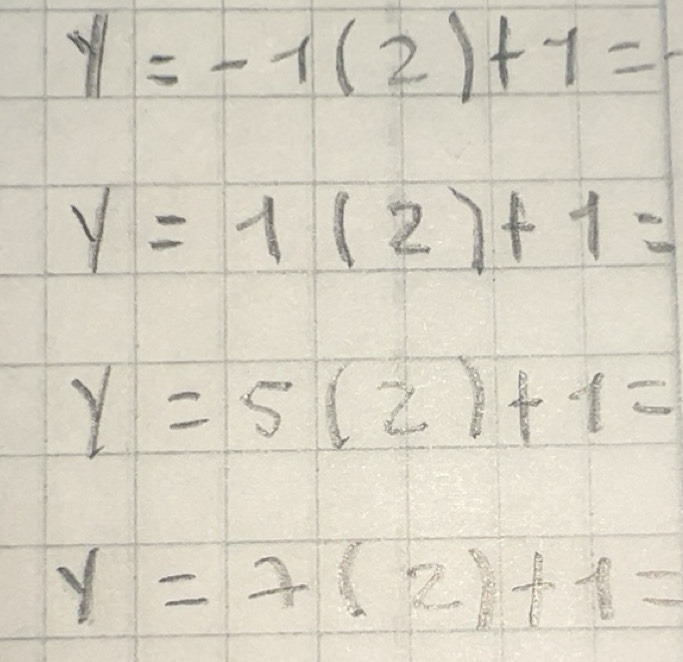 y = -1(2)+1=
y = 1(2)+1=
y = 5(2)+1=
y = 7(2)+1=